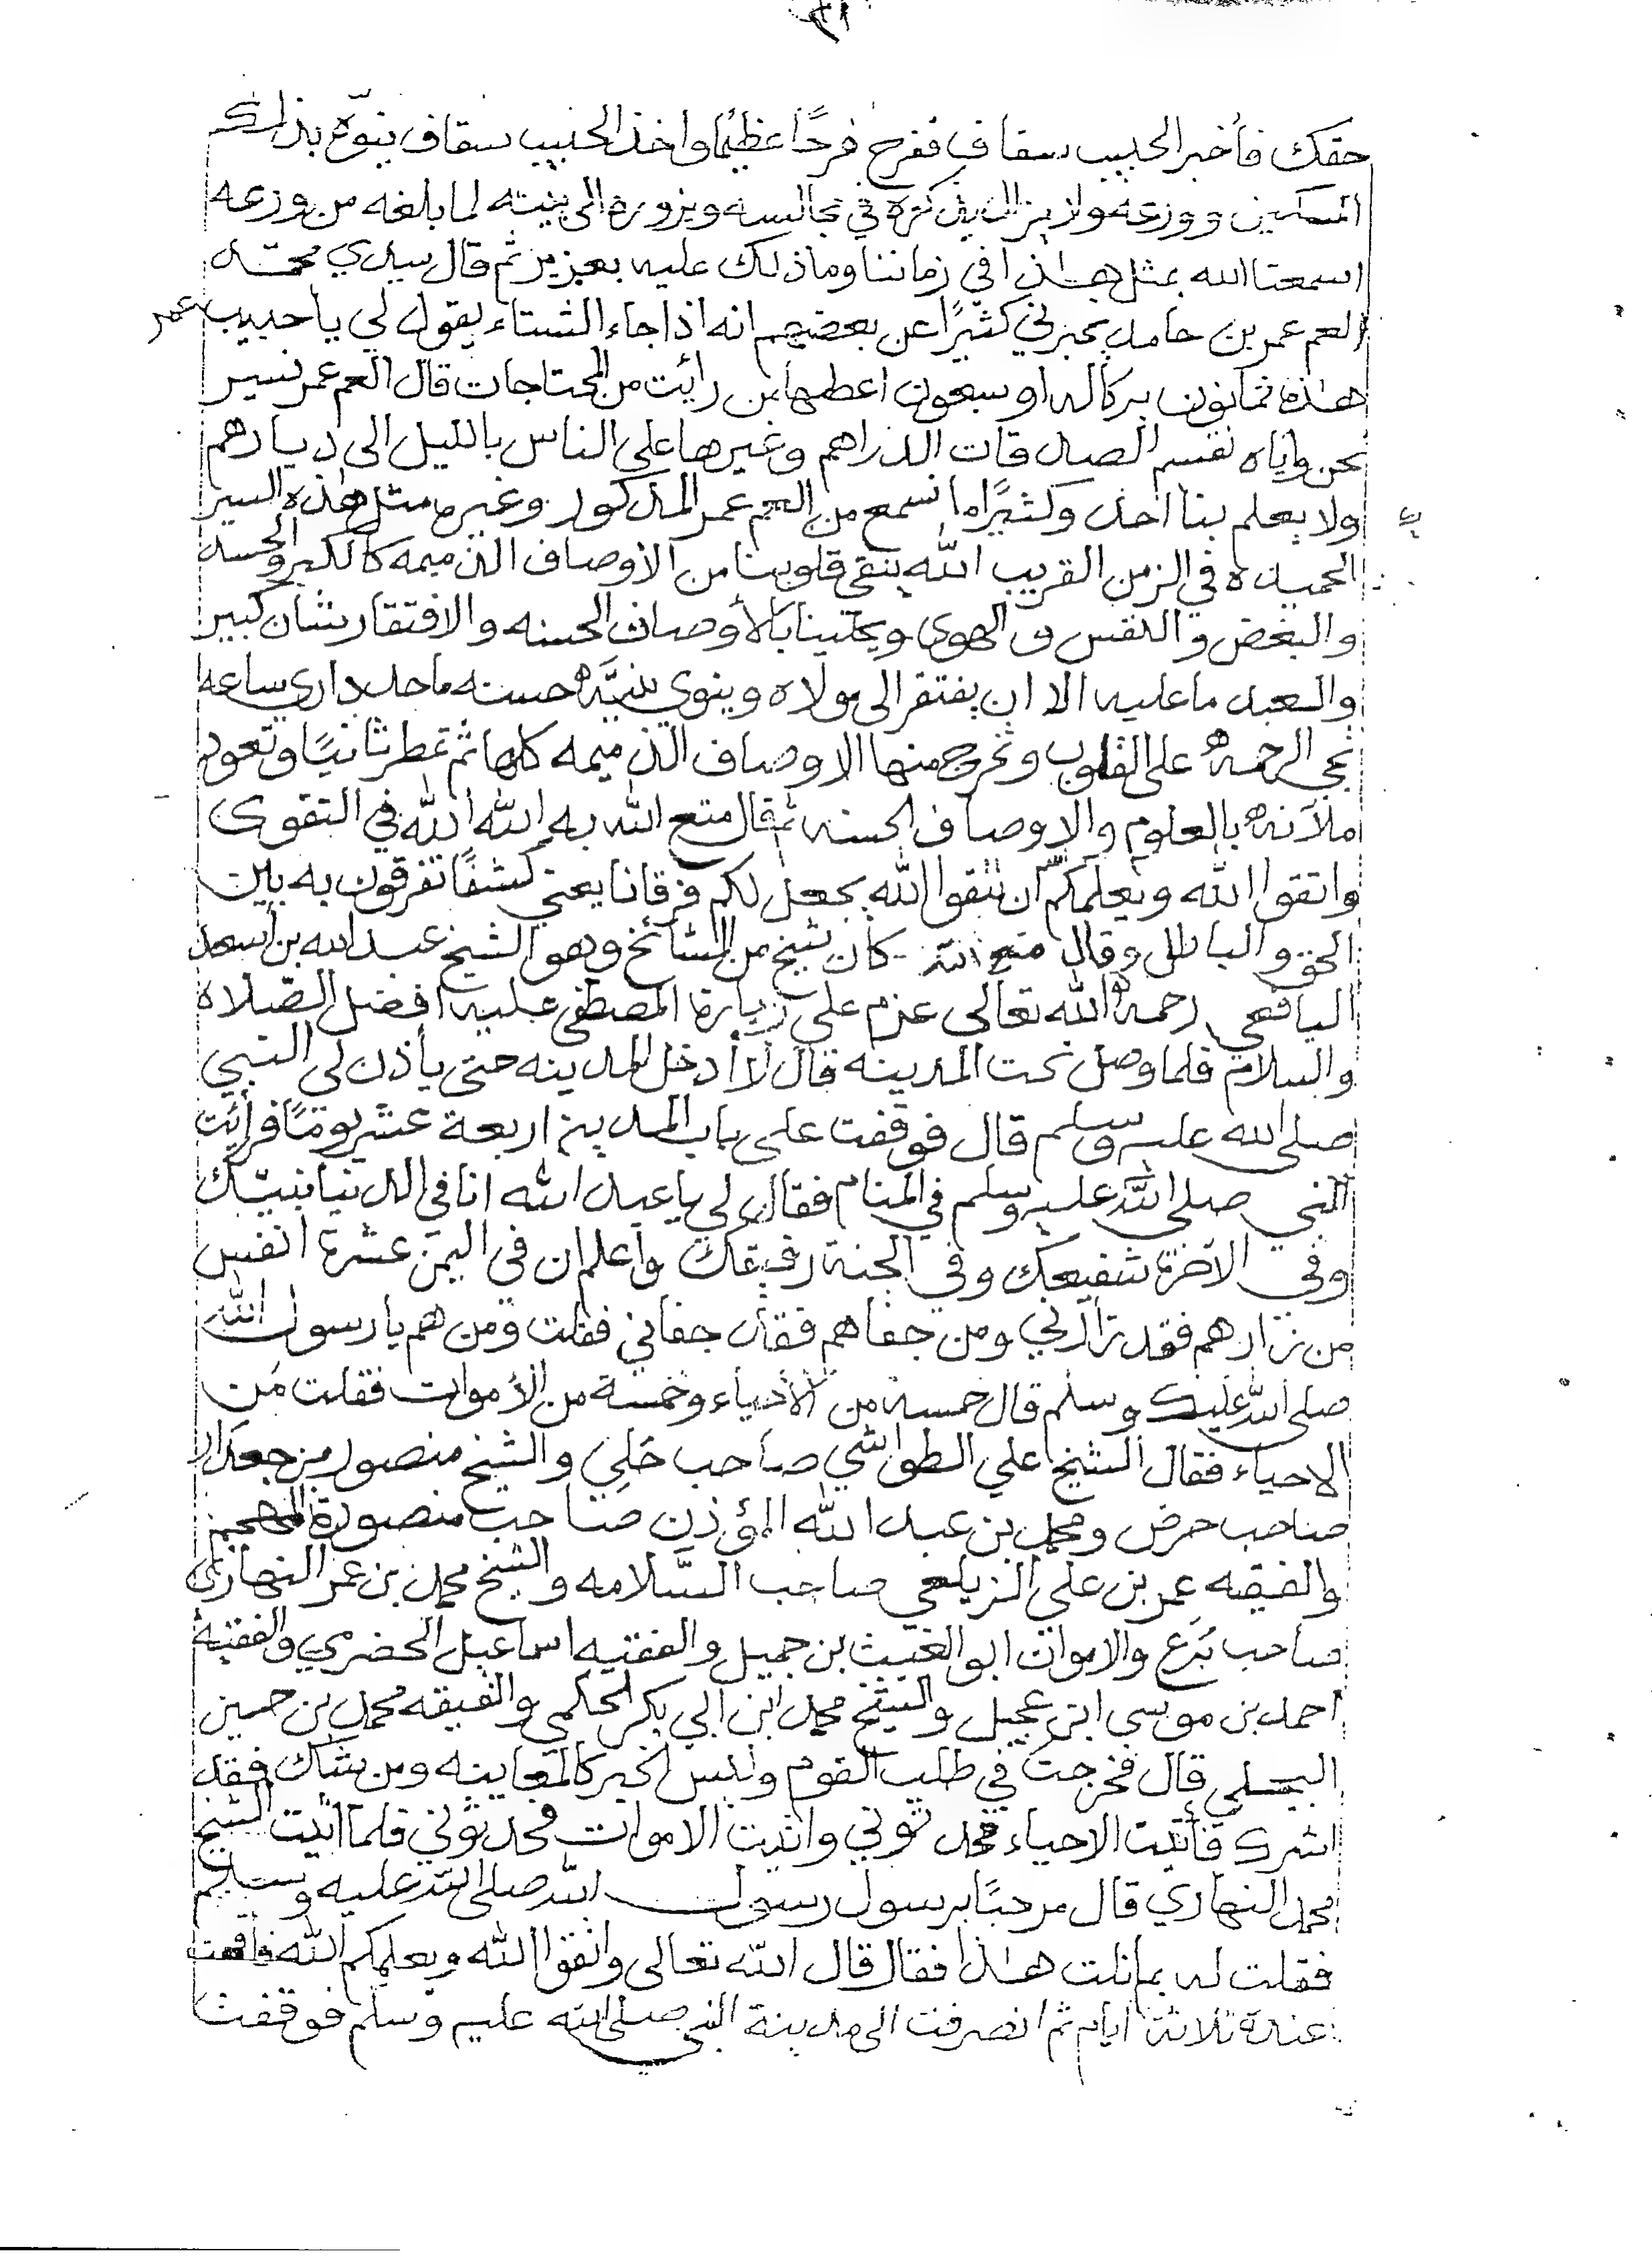 حقك فأخبر الحبيب سقاف ففرح فرحًا عظيمًا واخذ الحبيب سقاف ينوّه بذلك
المسكين وورعه ولا يزال يذكره في مجالسه ويزوره الى بيته لما بلغه من ورعه
اسمعنا الله بمثل هذا في زماننا وما ذلك عليه بعزيز ثم قال سيدي محمد
العم عمر بن حامد يخبرني كثيرًا عن بعضهم انه اذا جاء الشتاء يقول لي يا حبيب عمر
هذه ثمانون بركاله او سبعون اعطها من رأيت من المحتاجات قال العم عمر نسير
نحن واياه نقسم الصدقات الدراهم وغيرها على الناس بالليل الى ديارهم
ولا يعلم بنا احد وكثيرًا ما نسمع من العم عمر المذكور وغيره مثل هذه السير
الحميده في الزمن القريب الله ينقي قلوبنا من الاوصاف الذميمه كالكبر والحسد
والبغض والنفس والهوى ويحلينا بالأوصاف الحسنه والافتقار شان كبير
والعبد ما عليه الا ان يفتقر الى مولاه وينوي نيَّه حسنه ما حد داري ساعه
تجي الرحمه على القلوب وتخرج منها الاوصاف الذميمه كلها ثم تمطر ثانيًا وتعود
ملآنه بالعلوم والاوصاف الحسنه ثم قال متع الله به الله الله في التقوى
واتقوا الله ويعلمكم الله ان تتقوا الله يجعل لكم فرقانا يعني كشفًا تفرقون به بين
الحق والباطل وقال متع الله كان شيخ من المشائخ وهو الشيخ عبد الله بن أسعد
اليافعي رحمه الله تعالى عزم على زيارة المصطفى عليه افضل الصّلاة
والسلام فلما وصل تحت المدينه قال لا أدخل المدينه حتى يأذن لي النبي
صلى الله عليه وسلم قال فوقفت على باب المدينة اربعة عشر يومًا فرأيت
النبي صلى الله عليه وسلم في المنام فقال لي يا عبد الله انا في الدنيا نبيّك
وفي الآخرة شفيعك وفي الجنة رفيقك واعلم ان في اليمن عشرة انفس
من زارهم فقد زارني ومن جفاهم فقد جفاني فقلت ومن هم يا رسول الله
صلى الله عليك وسلم قال خمسة من الأحياء وخمسة من الأموات فقلت من
الاحياء فقال الشيخ علي الطواشي صاحب حَلِي والشيخ منصور بن جعدار
صاحب حرض ومحمد بن عبد الله المؤذن صاحب منصورة المهجم
والفقيه عمر بن علي الزيلعي صاحب السّلامه والشيخ محمد بن عمر النهاري
صاحب بَرَع والاموات ابو الغيث بن جميل والفقيه اسماعيل الحضرمي والفقيه
احمد بن موسى ابن عجيل والشيخ محمد ابن ابي بكر الحكمي والفقيه محمد بن حسين
البجلي قال فخرجت في طلب القوم وليس الخبر كالمعاينه ومن شاك فقد
اشرك فأتيت الاحياء فحدثوني واتيت الاموات فحدثوني فلما اتيت الشيخ
محمد النهاري قال مرحبًا برسول رسول الله صلى الله عليه وسلم
فقلت له بم نلت هذا فقال قال الله تعالى واتقوا الله ويعلمكم الله فأقمت
عنده ثلاثة ايام ثم انصرفت الى مدينة النبي صلى الله عليه وسلم فوقفت